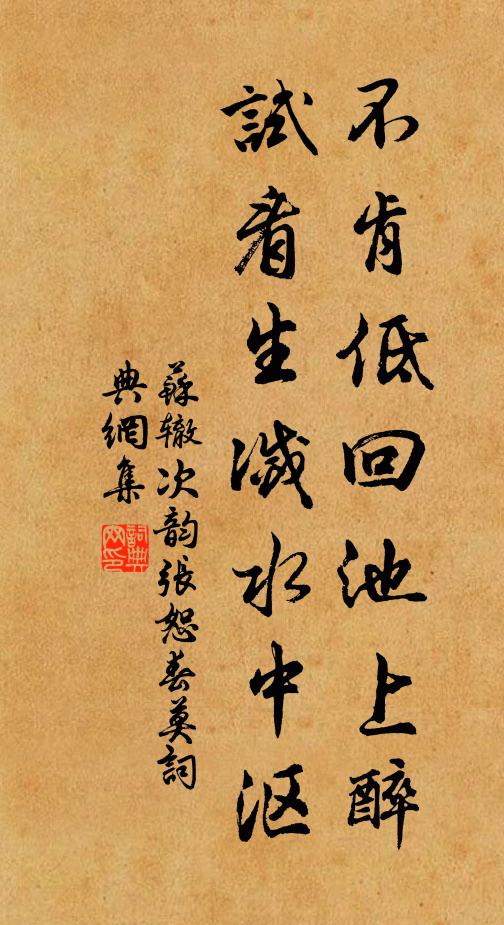 不肯低回池上醉
試看生滅水中沤
蘇辙次韵張恕春莫詞
典網集
詞典网印